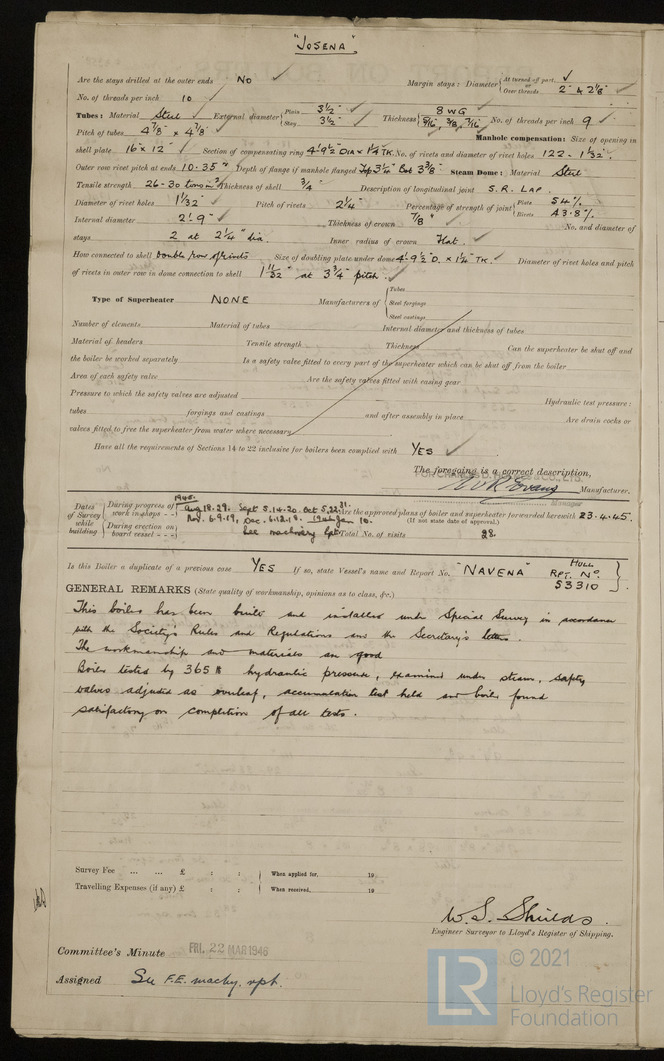 "JOSENA"
Are the stays drilled at the outer ends NO ✓ Margin stays: Diameter { At turned off part, ✓ or Over threads 2" & 2 1/8" ✓
No. of threads per inch 10
Tubes: Material Steel ✓ External diameter { Plain 3 1/2" ✓ Stay 3 1/2" ✓ Thickness { 8 WG 5/16, 3/8, 7/16 No. of threads per inch 9 ✓
Pitch of tubes 4 7/8" × 4 7/8" Manhole compensation: Size of opening in
shell plate 16" × 12" ✓ Section of compensating ring 4'-9 1/2" DIA × 1 1/4" TK. No. of rivets and diameter of rivet holes 122 - 1 1/32".
Outer row rivet pitch at ends 10.35" Depth of flange if manhole flanged Top 3 1/4" Bot 3 3/8" Steam Dome: Material Steel
Tensile strength 26-30 tons in² Thickness of shell 3/4" Description of longitudinal joint S.R. LAP.
Diameter of rivet holes 1 1/32" Pitch of rivets 2 1/4" Percentage of strength of joint { Plate 54% Rivets 43.8%
Internal diameter 2'-9" Thickness of crown 7/8" ✓ No. and diameter of
stays 2 at 2 1/4" dia. Inner radius of crown Flat. ✓
How connected to shell Double row of rivets Size of doubling plate under dome 4'-9 1/2" D. × 1 1/4" TK. Diameter of rivet holes and pitch
of rivets in outer row in dome connection to shell 1 11/32" at 3 3/4" pitch. ✓
Type of Superheater NONE Manufacturers of { Tubes Steel forgings Steel castings
Number of elements Material of tubes Internal diameter and thickness of tubes
Material of headers Tensile strength Thickness Can the superheater be shut off and
the boiler be worked separately Is a safety valve fitted to every part of the superheater which can be shut off from the boiler
Area of each safety valve Are the safety valves fitted with easing gear
Pressure to which the safety valves are adjusted Hydraulic test pressure:
tubes forgings and castings and after assembly in place Are drain cocks or
valves fitted to free the superheater from water where necessary
Have all the requirements of Sections 14 to 22 inclusive for boilers been complied with YES ✓
The foregoing is a correct description,
W R Evans Manufacturer.
Dates of Survey while building { During progress of work in shops - - 1945. Aug 18.29. Sept 5.14.20. Oct 5.22.31. Nov. 6.9.19, Dec. 6.12.18. Are the approved plans of boiler and superheater forwarded herewith 23.4.45.
(If not state date of approval.)
During erection on board vessel - - - See machinery rpt Total No. of visits 28.
Is this Boiler a duplicate of a previous case YES If so, state Vessel's name and Report No. "NAVENA" HULL RPT. No. 53310
GENERAL REMARKS (State quality of workmanship, opinions as to class, &c.)
This boiler has been built and installed under Special Survey in accordance
with the Society's Rules and Regulations and the Secretary's letters.
The workmanship and materials are good
Boiler tested by 365 lb hydraulic pressure, examined under steam, safety
valves adjusted as overleaf, accumulation test held and boiler found
satisfactory on completion of all tests.
Survey Fee ... ... £ : : { When applied for, 19
Travelling Expenses (if any) £ : : { When received, 19
W. S. Shields.
Engineer Surveyor to Lloyd's Register of Shipping.
Committee's Minute FRI. 22 MAR 1946
Assigned See F.E. machy. rpt.
LR © 2021
Lloyd's Register
Foundation